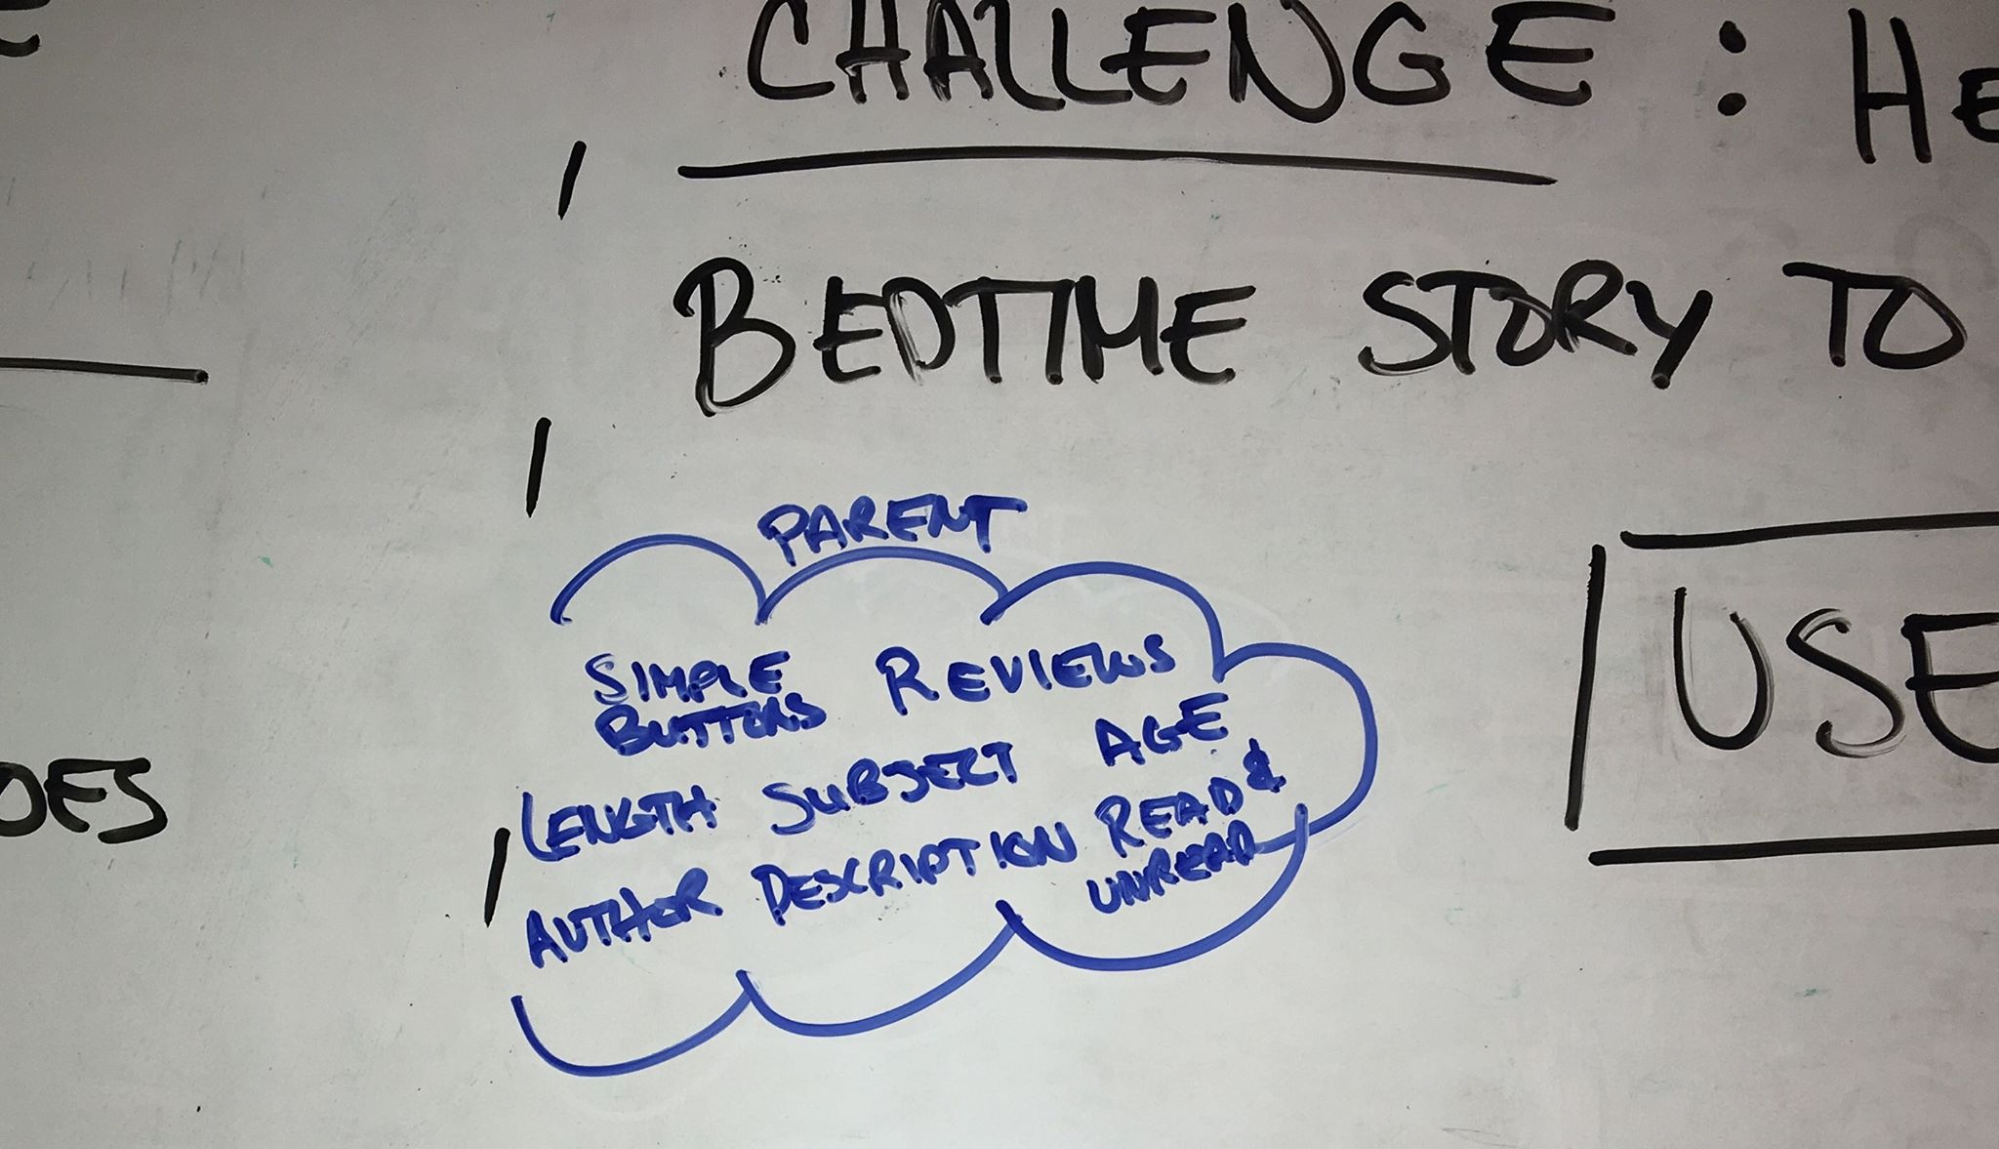 CHALLENGE: HE
BEDTIME STORY TO
PARENT
SIMPLE BUTTONS REVIEWS
LENGTH SUBJECT AGE
AUTHOR DESCRIPTION READ & UNREAD
USE
OES